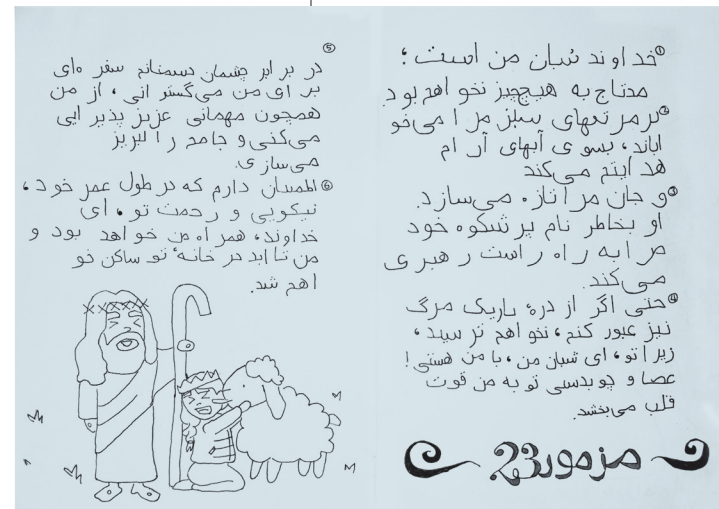 ① خداوند شبان من است؛
محتاج به هیچچیز نخواهم بود
② در مرتعهای سبز مرا میخو
اباند، بسوی آبهای آرام
هدایتم میکند
③ و جان مرا تازه میسازد.
او بخاطر نام پر شکوه خود
مرا به راه راست رهبری
میکند.
④ حتی اگر از درهٔ تاریک مرگ
نیز عبور کنم، نخواهم ترسید،
زیرا تو، ای شبان من، با من هستی!
عصا و چوبدستی تو به من قوت
قلب میبخشد.
مزمور 23
⑤
در برابر چشمان دشمنانم سفرهای
برای من میگسترانی، از من
همچون مهمانی عزیز پذیرایی
میکنی و جامم را لبریز
میسازی.
⑥ اطمینان دارم که در طول عمر خود،
نیکویی و رحمت تو، ای
خداوند، همراه من خواهد بود و
من تا ابد در خانهٔ تو ساکن خو
اهم شد.